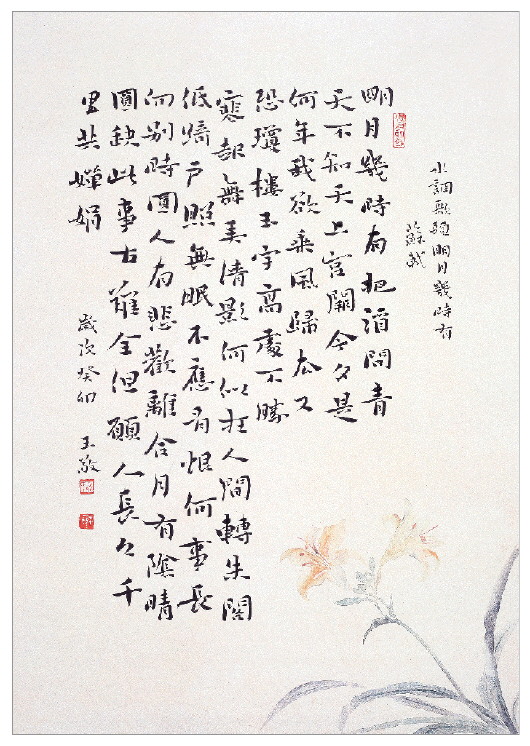 水調歌頭明月幾時有
蘇軾
明月幾時有把酒問青
天不知天上宮闕今夕是
何年我欲乘風歸去又
恐瓊樓玉宇高處不勝
寒起舞弄清影何似在人間轉朱閣
低綺戶照無眠不應有恨何事長
向別時圓人有悲歡離合月有陰晴
圓缺此事古難全但願人長久千
里共嬋娟
歲次癸卯 王敬